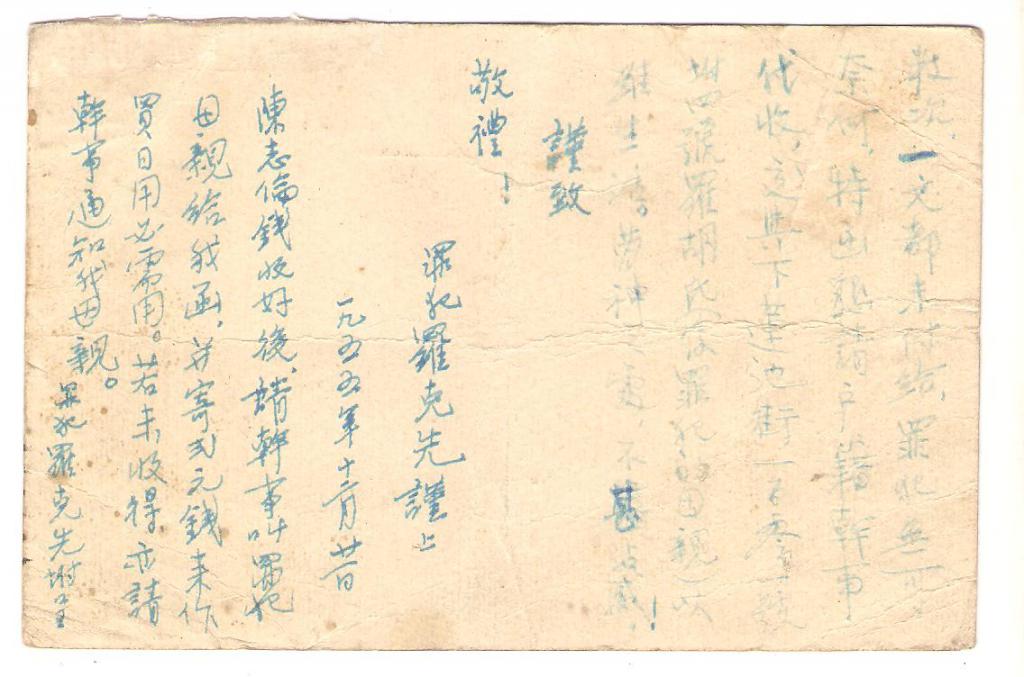 數次,一文都未付給,罪犯無可
奈何,特出懇請戶籍幹事
代收,交與下蓮池街一百零一號
附四號羅胡氏係罪犯的母親以
維生活。勞神之處,不甚沾感!
謹致
敬禮!
罪犯羅克先謹上
一九五五年十二月廿日
陳志倫錢收好後,請幹事叫罪犯
母親給我函,并寄弍元錢来作
買日用必需用。若未收得亦請
幹事通知我母親。
罪犯羅克先附呈